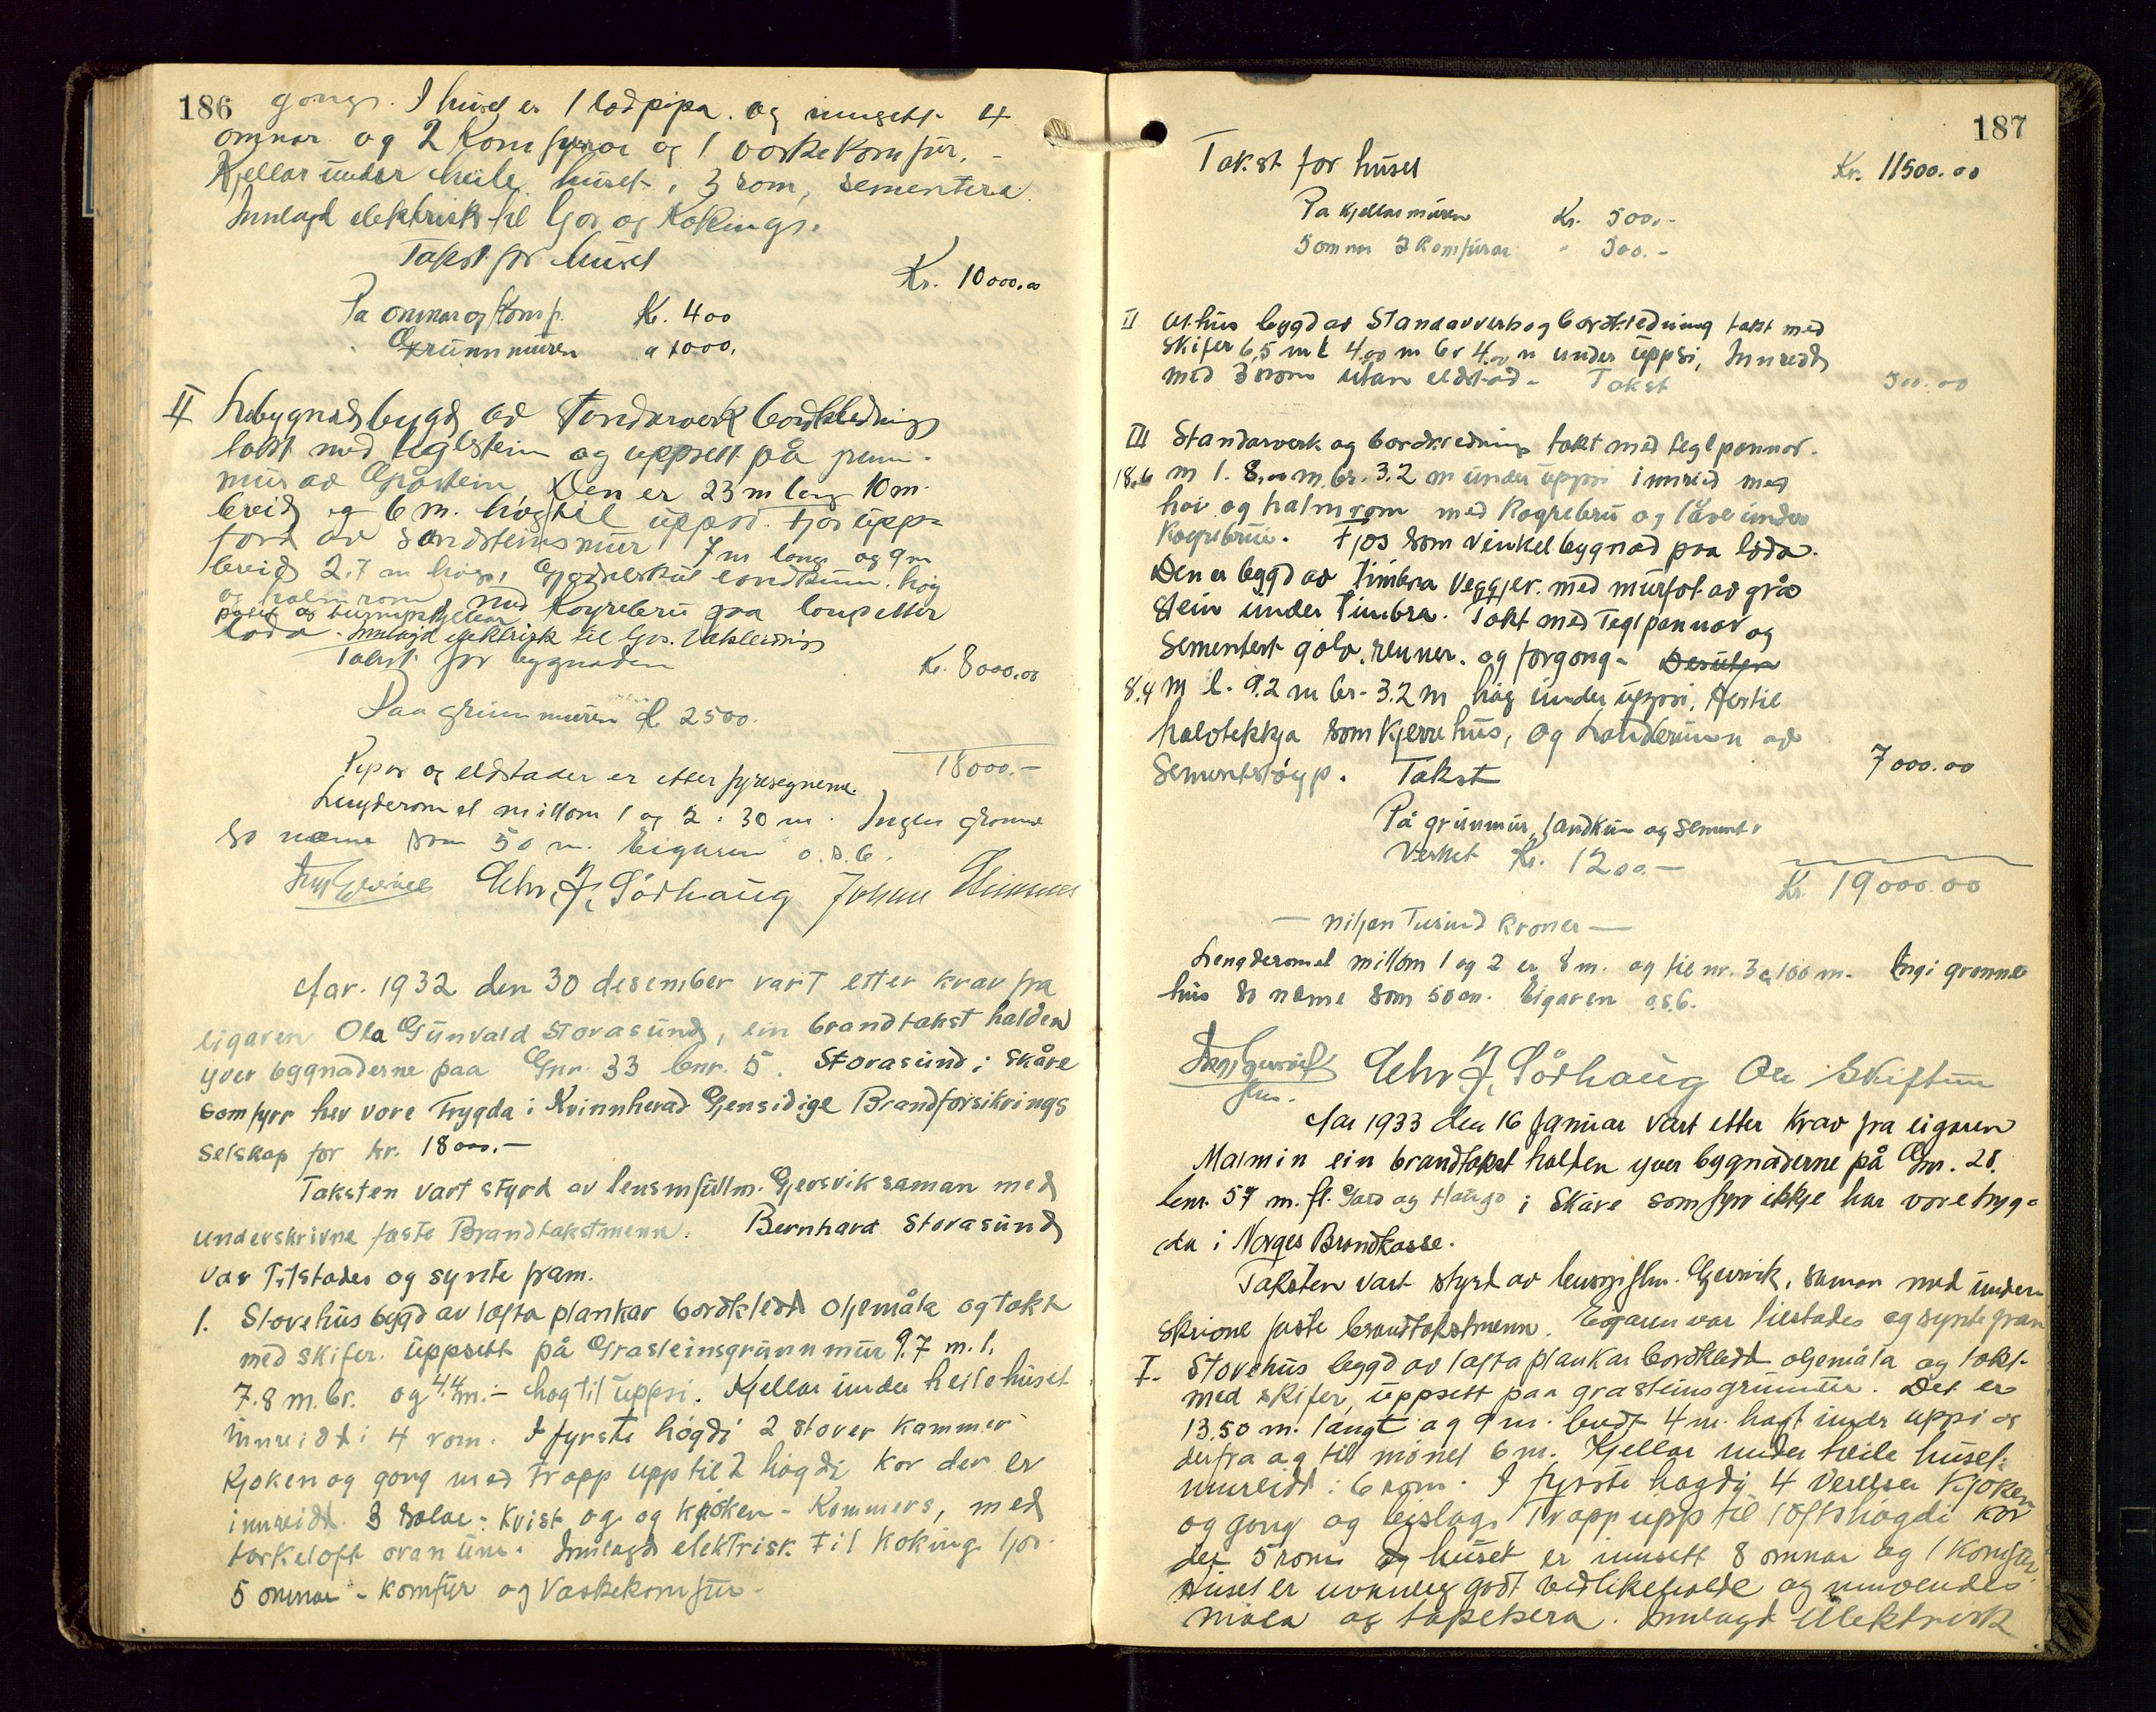 186
gong. I huset er 1 lodpipa og innsett 4
omnar og 2 Komfyrar og 1 vaskekomfür.
Kjellar under heile huset i 3 rom, sementera.
Innlagd elektrisk til ljos og Koking.
Takst for huset Kr. 10000.00
Pa omnar og Komf. Kr. 400
" Grunnmuren " 1000.
II Uebygnad bygd av Standarverk bordkledning
takt med teglstein og uppsett på grunn-
mur av Gråstein. Den er 23 m lang 10 m
breid og 6 m. høg til uppsi. Fjos upp-
ford av sandsteinsmur 7 m lang og 9 m
breid 2.7 m høg, Gjodselskut landkum, høy
og halmrom
med Koyrebru paa langs etter
loda. Innlagd elektrisk til ljos.
Takst for bygnaden Kr. 8000.00
Paa grunnmuren Kr 2500.
18000.-
Pipor og eldstader er etter fyresegnerne.
Lengderomet millom 1 og 2 : 30 m. Ingen granne
so næme som 50 m. Eigaren o.s.b.
Chr. J. Sørhaug Johan
Aar. 1932 den 30 desember vart etter krav fra
eigaren Ola Gunvald Storasund, ein brandtakst halden
yver bygnaderne paa Gnr. 33 bnr. 5. Storasund i Skåre
som fyrr hev vore Trygda i Kvinnherad Gjensidige Brandforsikrings
selskap for kr. 18000.-
Taksten vart styrd av lensmfullm. Gjersvik saman med
underskrivne faste Brandtakstmenn. Bernhard Storasund
var Tilstades og synte fram.
1. Stovehus bygd av lafta plankar bordkledd oljemåla og takt
med skifer. Uppsett på Grasteinsgrunnmur 9.7 m. l.
7.8 m. br. og 4.4 m.- hog til uppsi. Kjellar under heile huset
innreidd i 4 rom. I fyrste høgdi 2 stover Kammer
Kjoken og gong med trapp upp til 2 høgdi kor der er
innreidd 3 Salar - Kvist og og kjøken - Kammers, med
torkeloft ovanum. Innlagd elektrisk til koking ljos.
5 omnar - komfyr og Vaskekomfür -
187
Takst for huset Kr. 11500.00
Pa Kjellarmuren Kr. 500.-
5 omnar 2 Komfurar " 500.-
II bygd av Standarverk og bordkledning takt med
skifer 6,5 m l 4.00 m br 4.00 m under uppsi, Innreidd
med 3 rom utan eldstad - Takst 500.00
III Standarverk og bordkledning takt med teglpannor.
18.6 m l. 8.00 m. br. 3.2 m under uppsi innreid med
høi og halmrom med Køyrebru og låve under
Køyrebrui. Fjos som vinkelbygnad paa loda.
Den er bygd av timbra veggjer. med murfot av grå
stein under timbra. Takt med Teglpannor og
Sementert golv, renner. og forgong -
8.4 m l. 9.2 m br. 3.2 m høg under uppsi. Hertil
halvtekkja som kjerrehus, og Landkum av
Sementstøyp. Takst 7000.00
På grunmur, landkum og sement
verket Kr. 1200.-
Kr 19000.00
— nitjan Tusind Kroner —
Lengderomet millom 1 og 2 er 8 m. og til nr. 3 a 100 m. Ingi granne
hus so næme som 50 m. Eigaren o.s.b.
Chr. J. Sørhaug Ola Skiftun
Aar 1933 den 16 Januar vart etter krav fra eigaren
Malmin ein brandtakst halden yver bygnaderne på Gnr. 28.
bnr. 57 m. fl. Gard og Haugo i Skåre som fyrr ikkje har vore tryg-
da i Norges Brandkasse.
Taksten vart styrd av lensmflm. Gjersvik, saman med under-
skrivne faste brandtakstmenn. Eigaren var tilstades og synte fram
I. Stovehus bygd av lafta plankar bordkledd oljemåla og takt
med skifer, uppsett paa grasteinsgrunnmur. Det er
13.50 m. langt og 9 m. bredt 4 m. høgt under uppsi og
derfra og til mønet 6 m. Kjellar under heile huset
innreidd i 6 rom. I fyrste høgdi 4 verelser Kjøken
og gong og bislag. Trapp upp til loftshøgdi kor
det 5 rom. I huset er innsett 8 omnar og 1 Komfür
Huset er uvanleg godt vedlikeholde og innvendes
måla og tapetsera. Innlagt Elektrisk